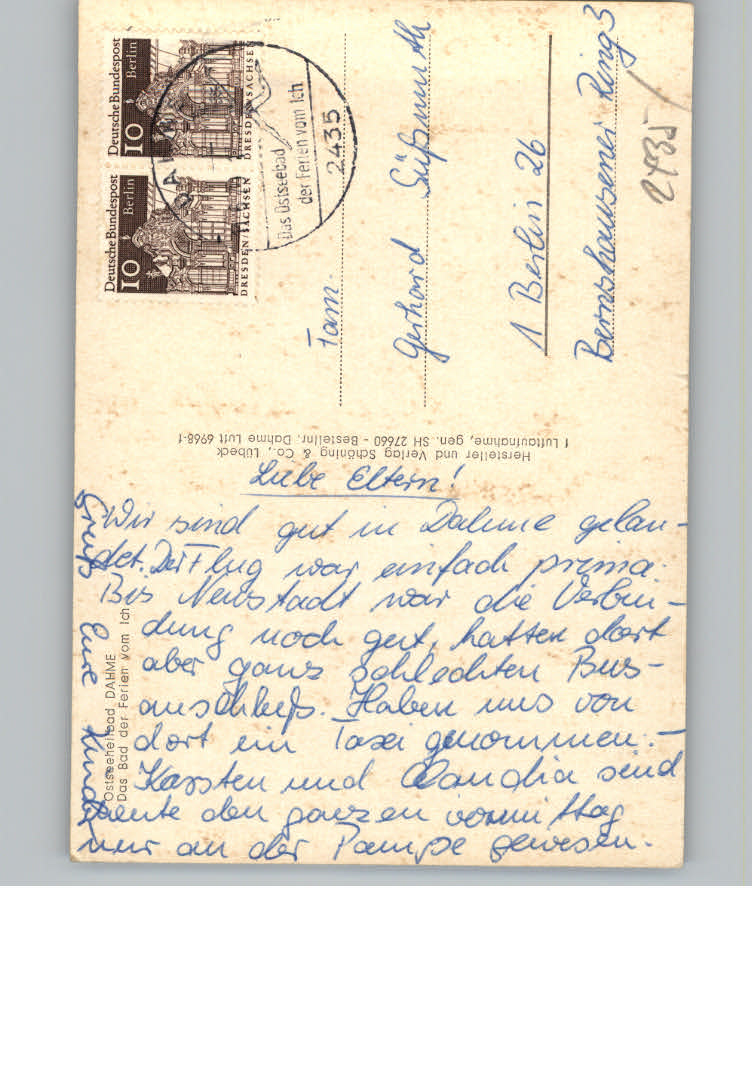 Deutsche Bundespost
Berlin
10
DRESDEN/SACHSEN
Deutsche Bundespost
Berlin
10
DRESDEN/SACHSEN
Das Ostseebad
der Ferien vom Ich
2435
Fam.
Gerhard Süßmuth
1 Berlin 26
Ring 3
2435
Hersteller und Verlag Schöning & Co., Lübeck
f Luftaufnahme, gen. SH 27660 - Bestellnr. Dahme Luft 6968-f
Ostseeheilbad DAHME
Das Bad der Ferien vom Ich
Liebe Eltern!
Wir sind gut in Dahme gelan-
det. Der Flug war einfach prima.
Bis Neustadt war die Verbin-
dung noch gut, hatten dort
aber ganz schlechten Bus-
anschluß. Haben uns von
dort ein Taxi genommen. -
Karsten und Claudia sind
heute den ganzen vormittag
nur an der Pampe gewesen.
Gruß Eure Kinder